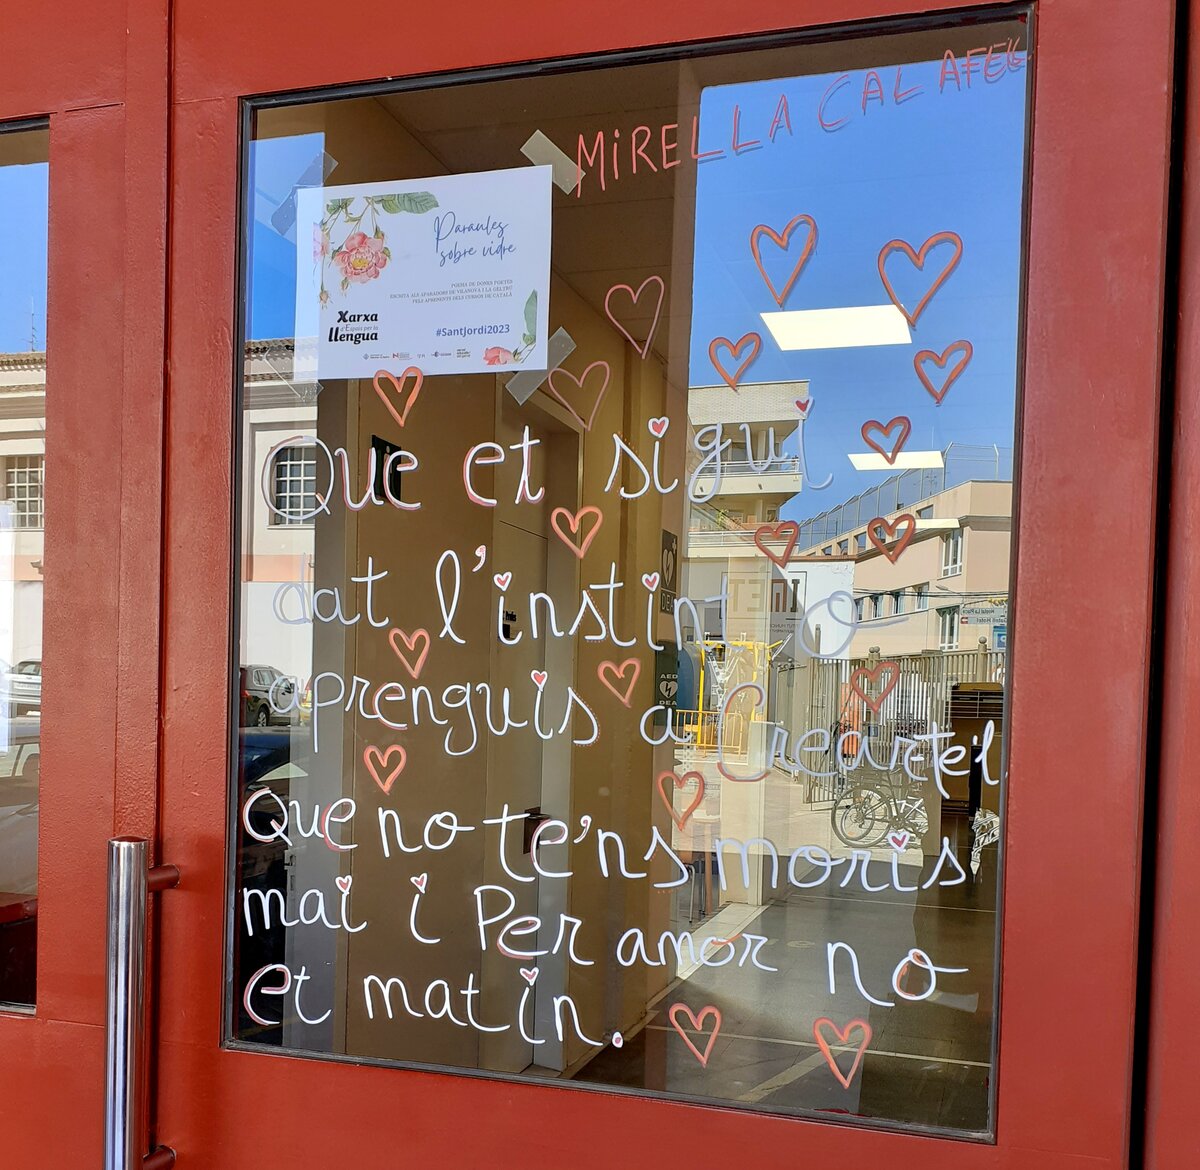 MiRELLA CALAFELL
Paraules
sobre vidre
POEMA DE DONES POETES
ESCRITA ALS APARADORS DE VILANOVA I LA GELTRÚ
PELS APRENENTS DELS CURSOS DE CATALÀ
Xarxa
d'Espais per la
llengua
#SantJordi2023
Que et sigui
dat l'instint o
aprenguis a Crear-te'l.
Que no te'ns moris
mai i Per amor no
et matin.
IMET
DEA
AED
DEA